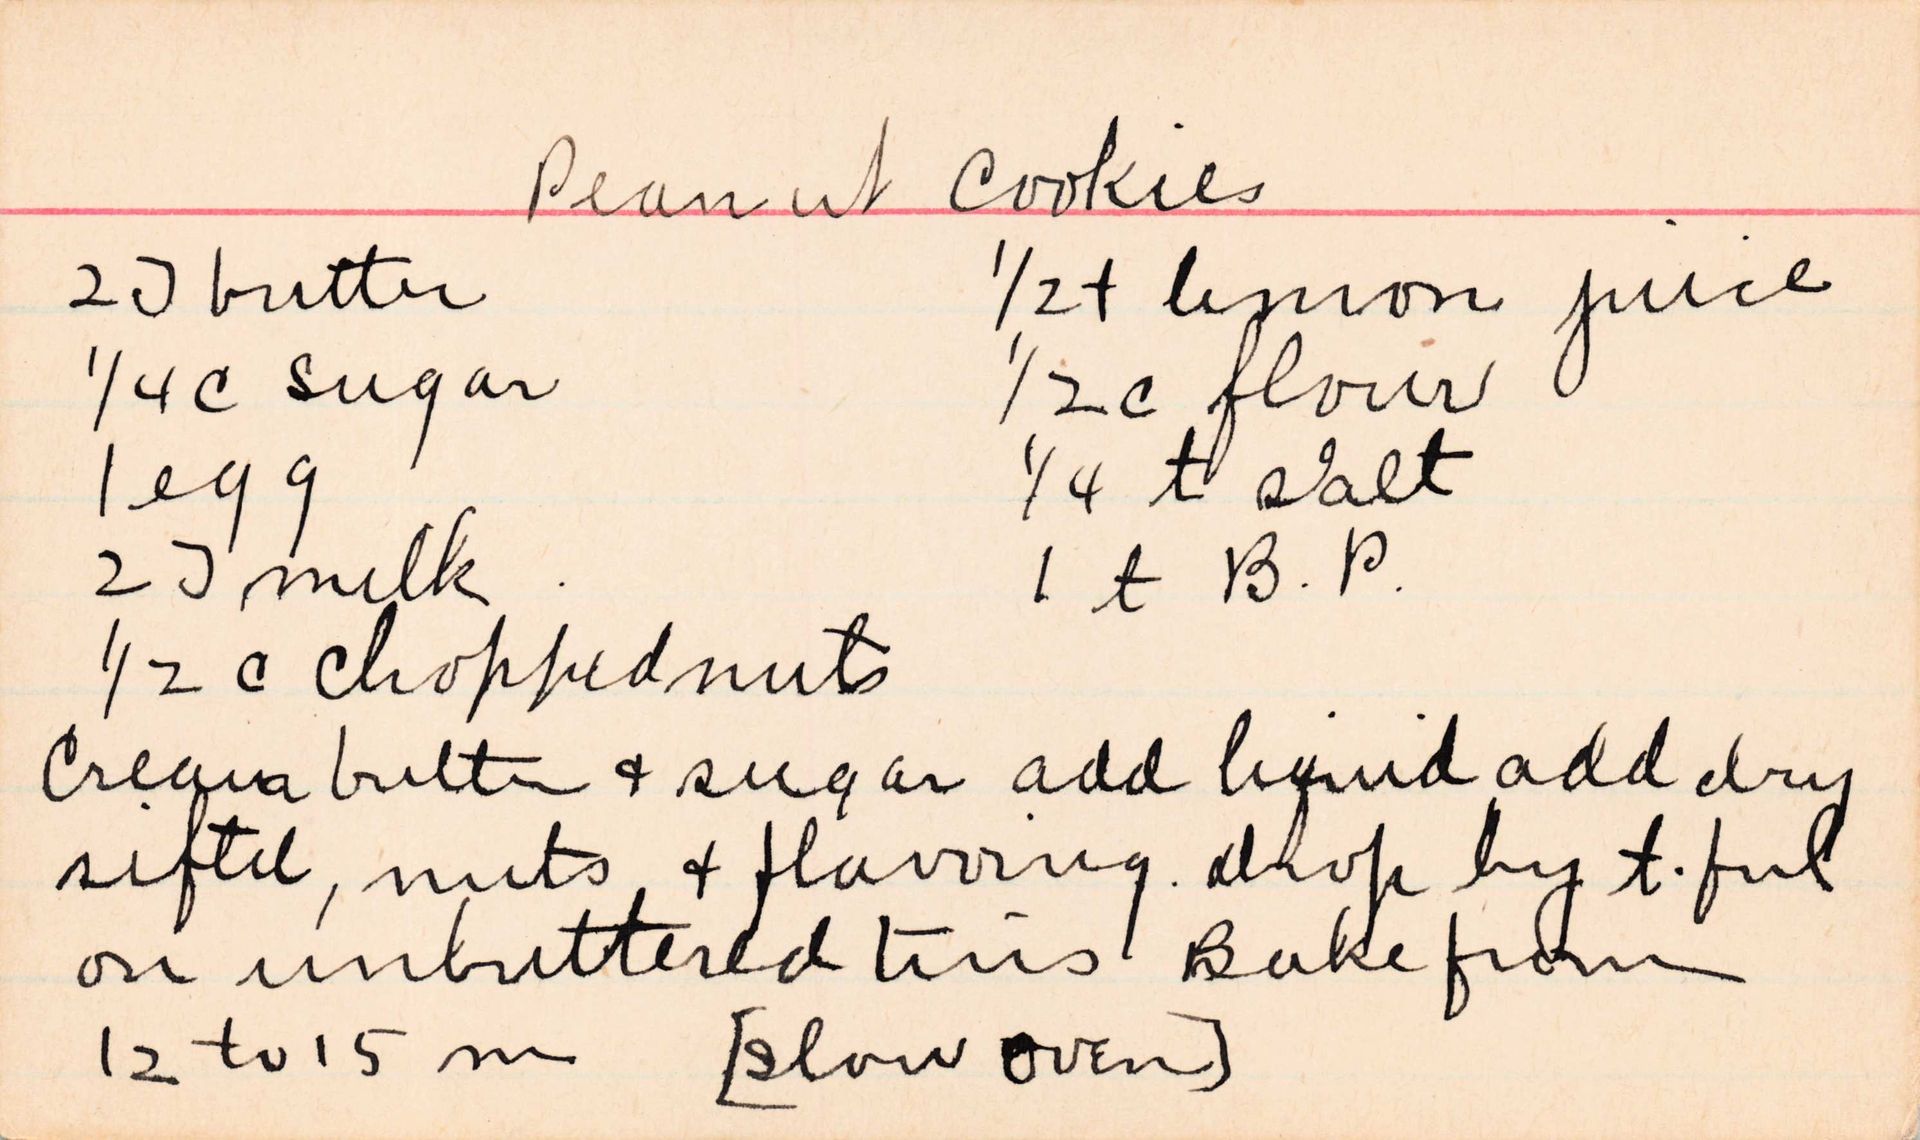 Peanut Cookies
2 T butter
1/4 c sugar
1 egg
2 T milk
1/2 c chopped nuts
1/2 t lemon juice
1/2 c flour
1/4 t salt
1 t B.P.
Cream butter + sugar add liquid add dry
sifted, nuts, + flavoring. drop by t.ful
on unbuttered tins Bake from
12 to 15 m [slow oven]